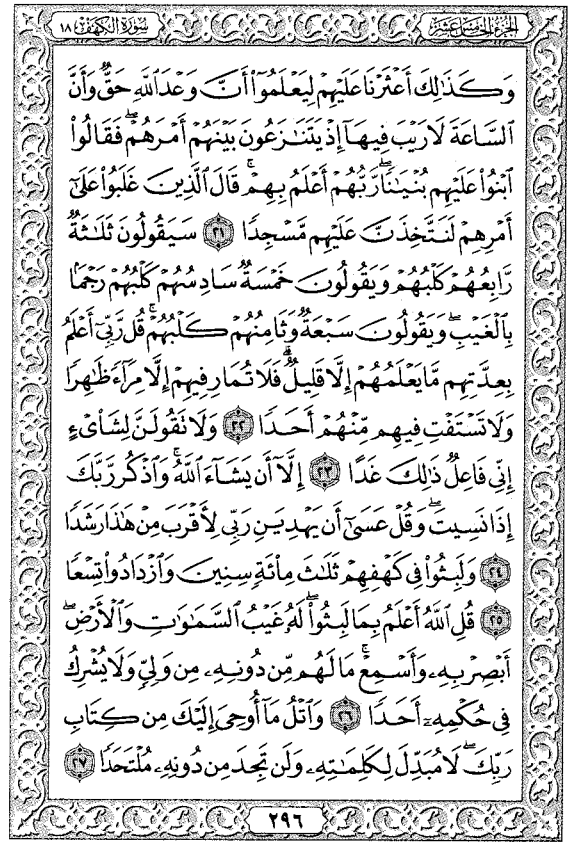 سورة الكهف ١٨
الجزء الخامس عشر
وَكَذَٰلِكَ أَعْثَرْنَا عَلَيْهِمْ لِيَعْلَمُوٓا۟ أَنَّ وَعْدَ ٱللَّهِ حَقٌّ وَأَنَّ
ٱلسَّاعَةَ لَا رَيْبَ فِيهَآ إِذْ يَتَنَٰزَعُونَ بَيْنَهُمْ أَمْرَهُمْ ۖ فَقَالُوا۟
ٱبْنُوا۟ عَلَيْهِم بُنْيَٰنًا ۖ رَّبُّهُمْ أَعْلَمُ بِهِمْ ۚ قَالَ ٱلَّذِينَ غَلَبُوا۟ عَلَىٰٓ
أَمْرِهِمْ لَنَتَّخِذَنَّ عَلَيْهِم مَّسْجِدًا ٢١ سَيَقُولُونَ ثَلَٰثَةٌ
رَّابِعُهُمْ كَلْبُهُمْ وَيَقُولُونَ خَمْسَةٌ سَادِسُهُمْ كَلْبُهُمْ رَجْمًۢا
بِٱلْغَيْبِ ۖ وَيَقُولُونَ سَبْعَةٌ وَثَامِنُهُمْ كَلْبُهُمْ ۚ قُل رَّبِّىٓ أَعْلَمُ
بِعِدَّتِهِم مَّا يَعْلَمُهُمْ إِلَّا قَلِيلٌ ۗ فَلَا تُمَارِ فِيهِمْ إِلَّا مِرَآءً ظَٰهِرًا
وَلَا تَسْتَفْتِ فِيهِم مِّنْهُمْ أَحَدًا ٢٢ وَلَا تَقُولَنَّ لِشَا۟ىْءٍ
إِنِّى فَاعِلٌ ذَٰلِكَ غَدًا ٢٣ إِلَّآ أَن يَشَآءَ ٱللَّهُ ۚ وَٱذْكُر رَّبَّكَ
إِذَا نَسِيتَ ۖ وَقُلْ عَسَىٰٓ أَن يَهْدِيَنِ رَبِّى لِأَقْرَبَ مِنْ هَٰذَا رَشَدًا
٢٤ وَلَبِثُوا۟ فِى كَهْفِهِمْ ثَلَٰثَ مِا۟ئَةٍ سِنِينَ وَٱزْدَادُوا۟ تِسْعًا
٢٥ قُلِ ٱللَّهُ أَعْلَمُ بِمَا لَبِثُوا۟ ۖ لَهُۥ غَيْبُ ٱلسَّمَٰوَٰتِ وَٱلْأَرْضِ ۖ
أَبْصِرْ بِهِۦ وَأَسْمِعْ ۚ مَا لَهُم مِّن دُونِهِۦ مِن وَلِىٍّ وَلَا يُشْرِكُ
فِى حُكْمِهِۦٓ أَحَدًا ٢٦ وَٱتْلُ مَآ أُوحِىَ إِلَيْكَ مِن كِتَابِ
رَبِّكَ ۖ لَا مُبَدِّلَ لِكَلِمَٰتِهِۦ وَلَن تَجِدَ مِن دُونِهِۦ مُلْتَحَدًا ٢٧
٢٩٦